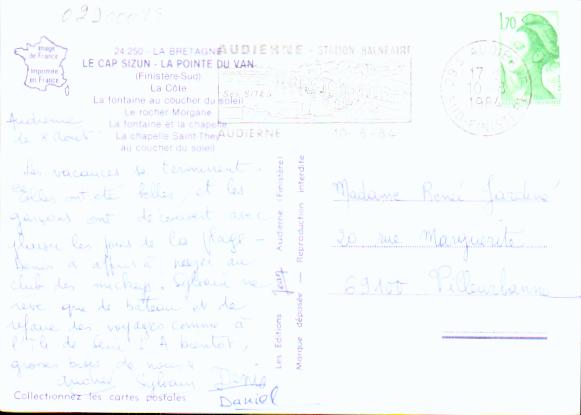 02900045
Image
de France
Imprimée
en France
24.250 - LA BRETAGNE
LE CAP SIZUN - LA POINTE DU VAN
(Finistère-Sud)
La Côte
La fontaine au coucher du soleil
Le rocher Morgane
La fontaine et la chapelle
La chapelle Saint-They
au coucher du soleil
AUDIERNE - STATION BALNÉAIRE
SES SITES
AUDIERNE 10-8-84
AUDIERNE
17 H
10-8
1984
FINISTERE
1,70
Audierne
le 8 Août
Les vacances se terminent.
Elles ont été belles, et les
garçons ont découvert avec
plaisir les joies de la plage -
Denis a appris à nager au
club des mickeys. Sylvain ne
rêve que de bateau et de
refaire des voyages comme à
l'île de Sein! A bientôt,
grosses bises de nous 4
Sylvain Denis
Daniel
Collectionnez les cartes postales
Les Editions Jean Audierne (Finistère)
Marque déposée — Reproduction interdite
Madame René Jardiné
20 rue Marguerite
69100 Villeurbanne